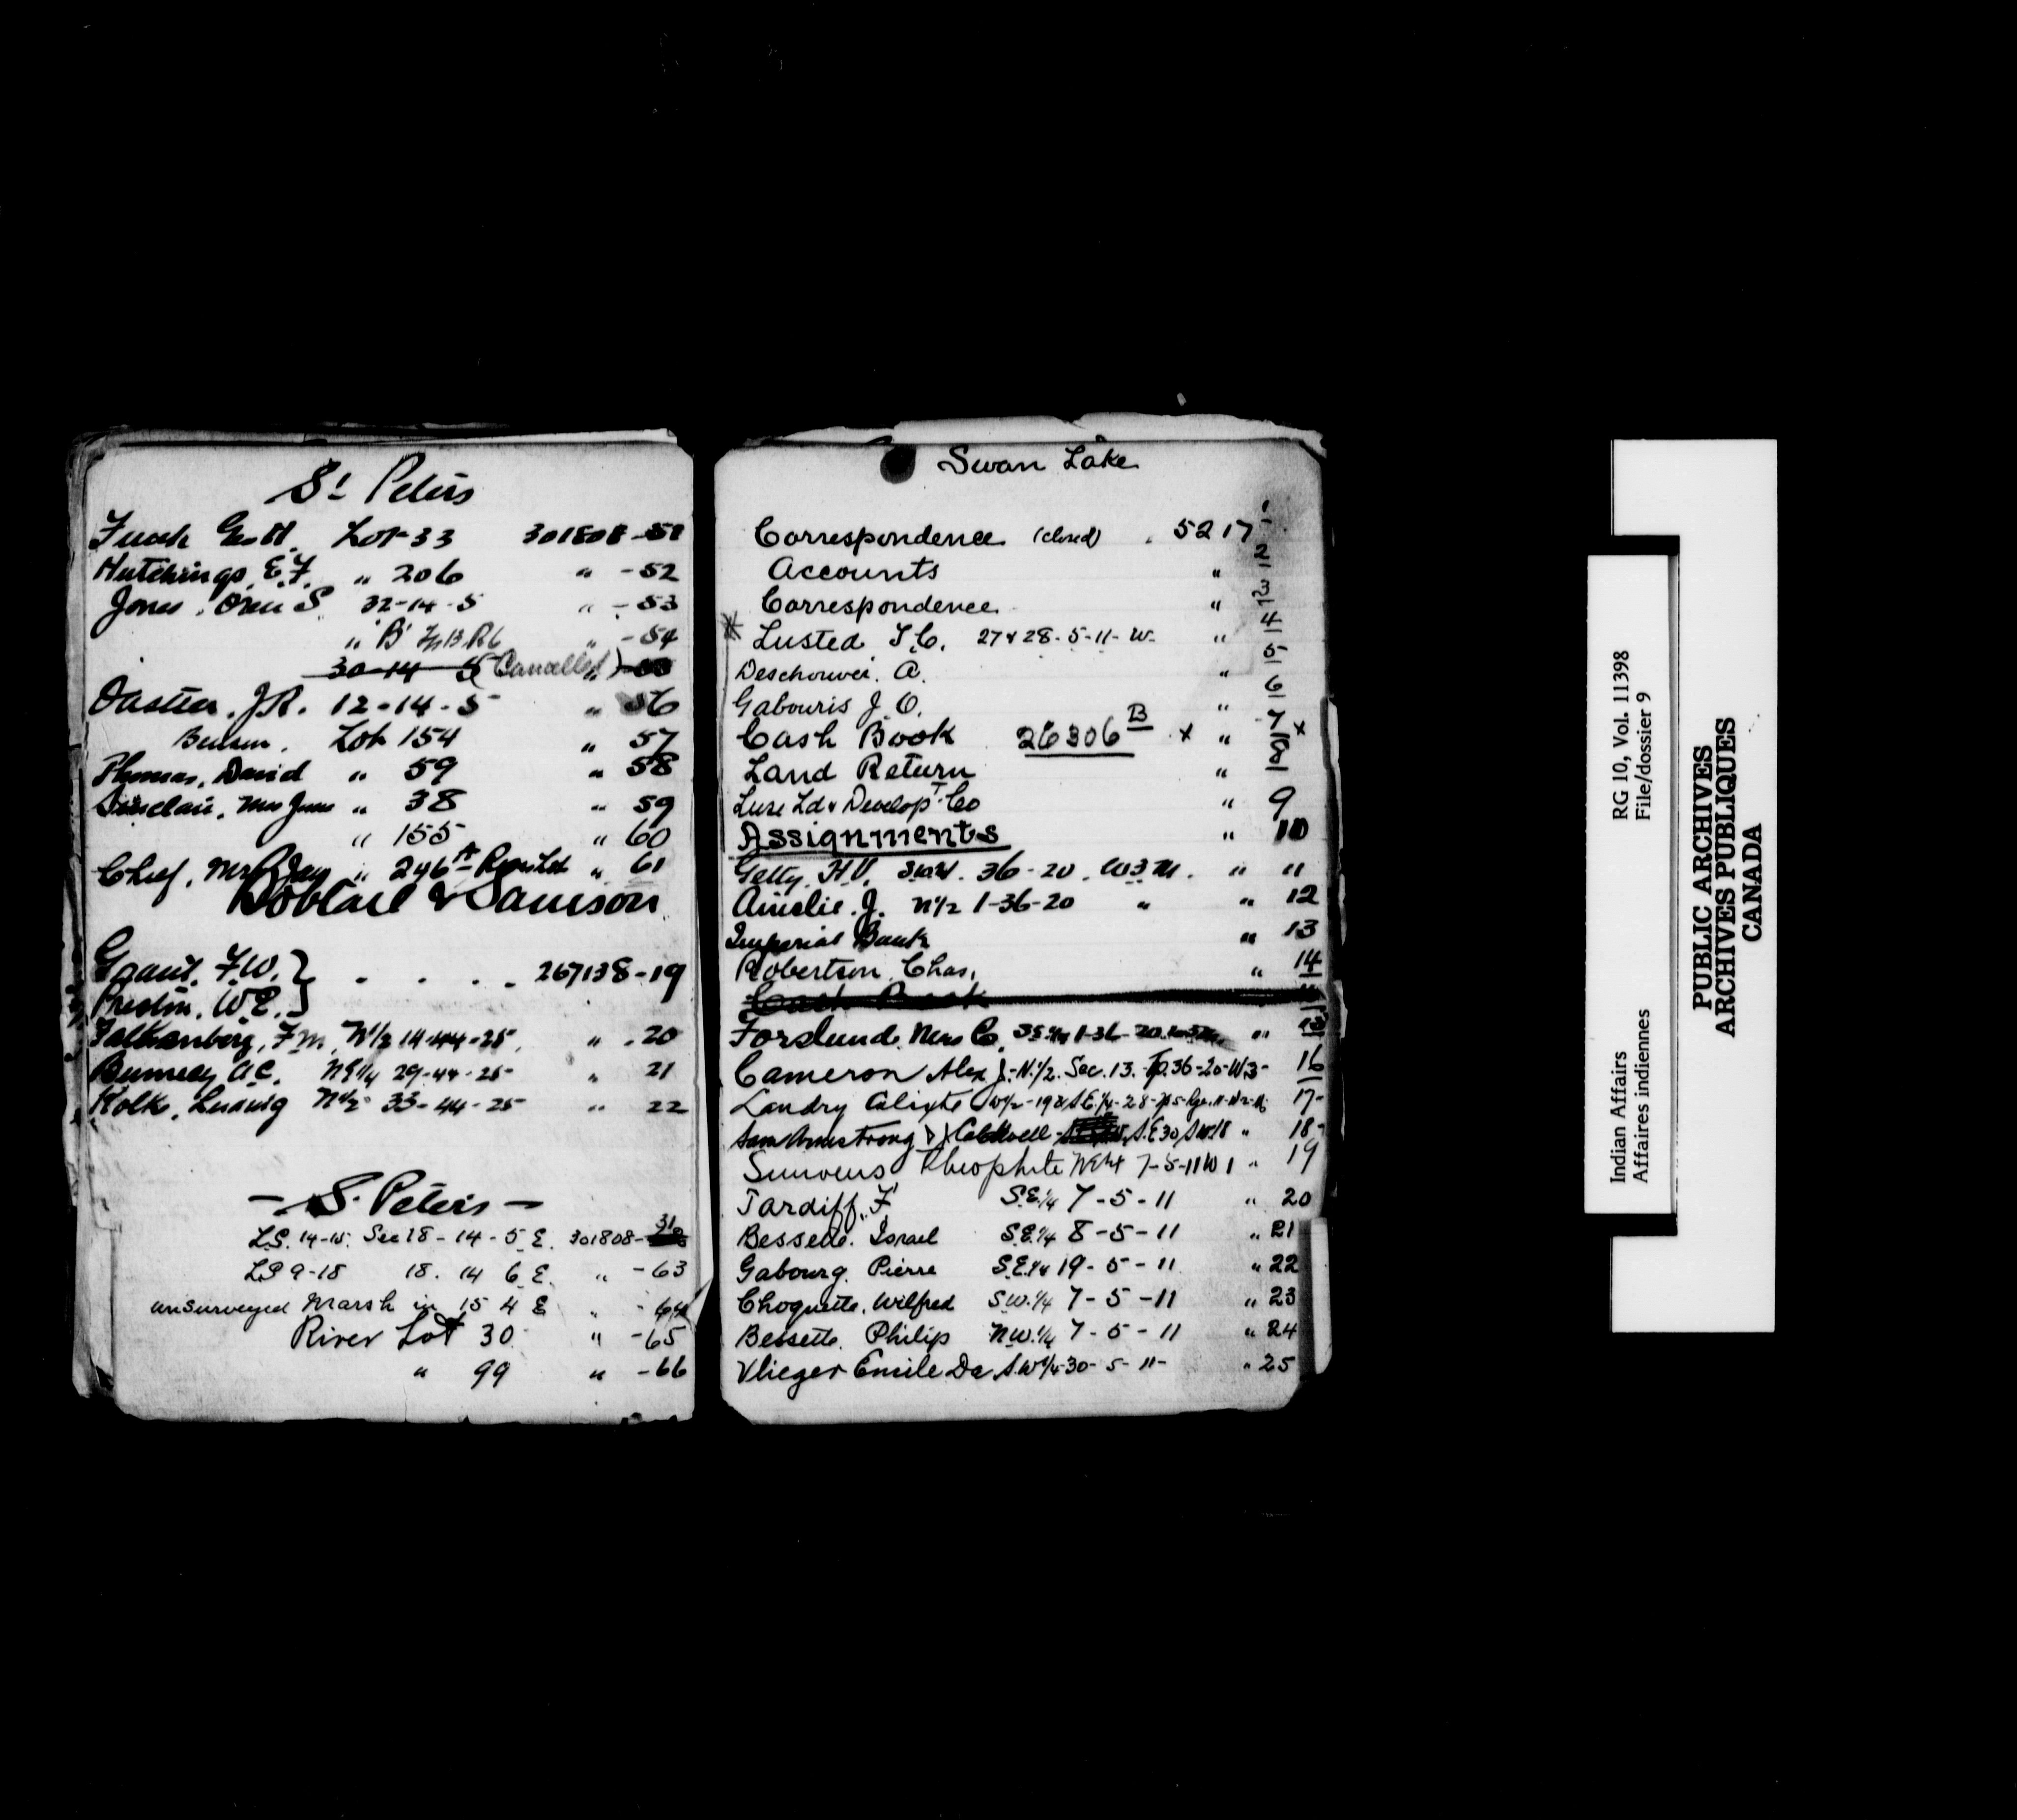 St Peters
Lot 33 301808-51
Hutchings, E.F. " 206 " -52
Jones, Oren S. 32-14-5 " -53
" 'B' " -54
30-14-5 (Cancelled)
J.R. 12-14-5 " 56
Lot 154 " 57
Thomas, David " 59 " 58
Sinclair, Mrs " 38 " 59
" 155 " 60
Chief, " 246 A " 61
Bobtail & Samson
Grant, F.W. } . . . . 267138-19
Preston, W.E. }
Falkenberg, F.M. N½ 14-44-25 " 20
A.C. NE¼ 29-44-25 " 21
Kolk, Ludwig N½ 33-44-25 " 22
- St. Peters -
L.S. 14-15. Sec 18-14-5 E. 301808- 31
LS 9-18 18. 14 6 E. " -63
unsurveyed Marsh in 15 4 E " -64
River Lot 30 " -65
" 99 " -66
Swan Lake
Correspondence (closed) . 5217 - 1
Accounts " 2
Correspondence " 3
* Lusted T.C. 27 & 28-5-11-W- " 4
A. " 5
Gabouris J.O. " 6
Cash Book 26306 B x " -7 x
Land Return " 8
Luse Ld & Develop't Co " 9
Assignments " 10
Getty. H.V. 36-20. W3M. " 11
Ainslie. J. N½ 1-36-20 " " 12
Imperial Bank " 13
Robertson, Chas. " 14
Cash Book
Forslund, Mrs C. 1-36-20 "
Cameron Alex J.-N.½. Sec. 13. Tp. 36-20-W3- 16
Landry Calixte 17-
Sam Armstrong S.E 30 " 18-
Theophile 7-5-11 W 1 " 19
Tardiff, F S.E.¼ 7-5-11 " 20
Bessette. Israel S.E.¼ 8-5-11 " 21
Gabourg. Pierre S.E.¼ 19-5-11 " 22
Choquette, Wilfred S.W.¼ 7-5-11 " 23
Bessette. Philip N.W.¼ 7-5-11 " 24
Vlieger Emile De S.W¼-30-5-11- " 25
Indian Affairs RG 10, Vol. 11398
Affaires indiennes File/dossier 9
PUBLIC ARCHIVES
ARCHIVES PUBLIQUES
CANADA